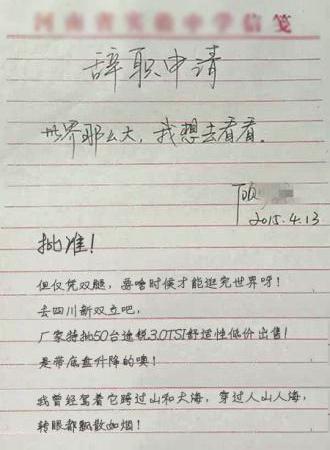 信笺
辞职申请
世界那么大，我想去看看。
2015.4.13
批准！
但仅凭双腿，要啥时候才能逛完世界呀！
去四川新双立吧，
厂家特批50台途锐3.0TSI舒适性低价出售！
是带底盘升降的噢！
我曾经驾着它跨过山和大海，穿过人山人海，
转眼都飘散如烟！